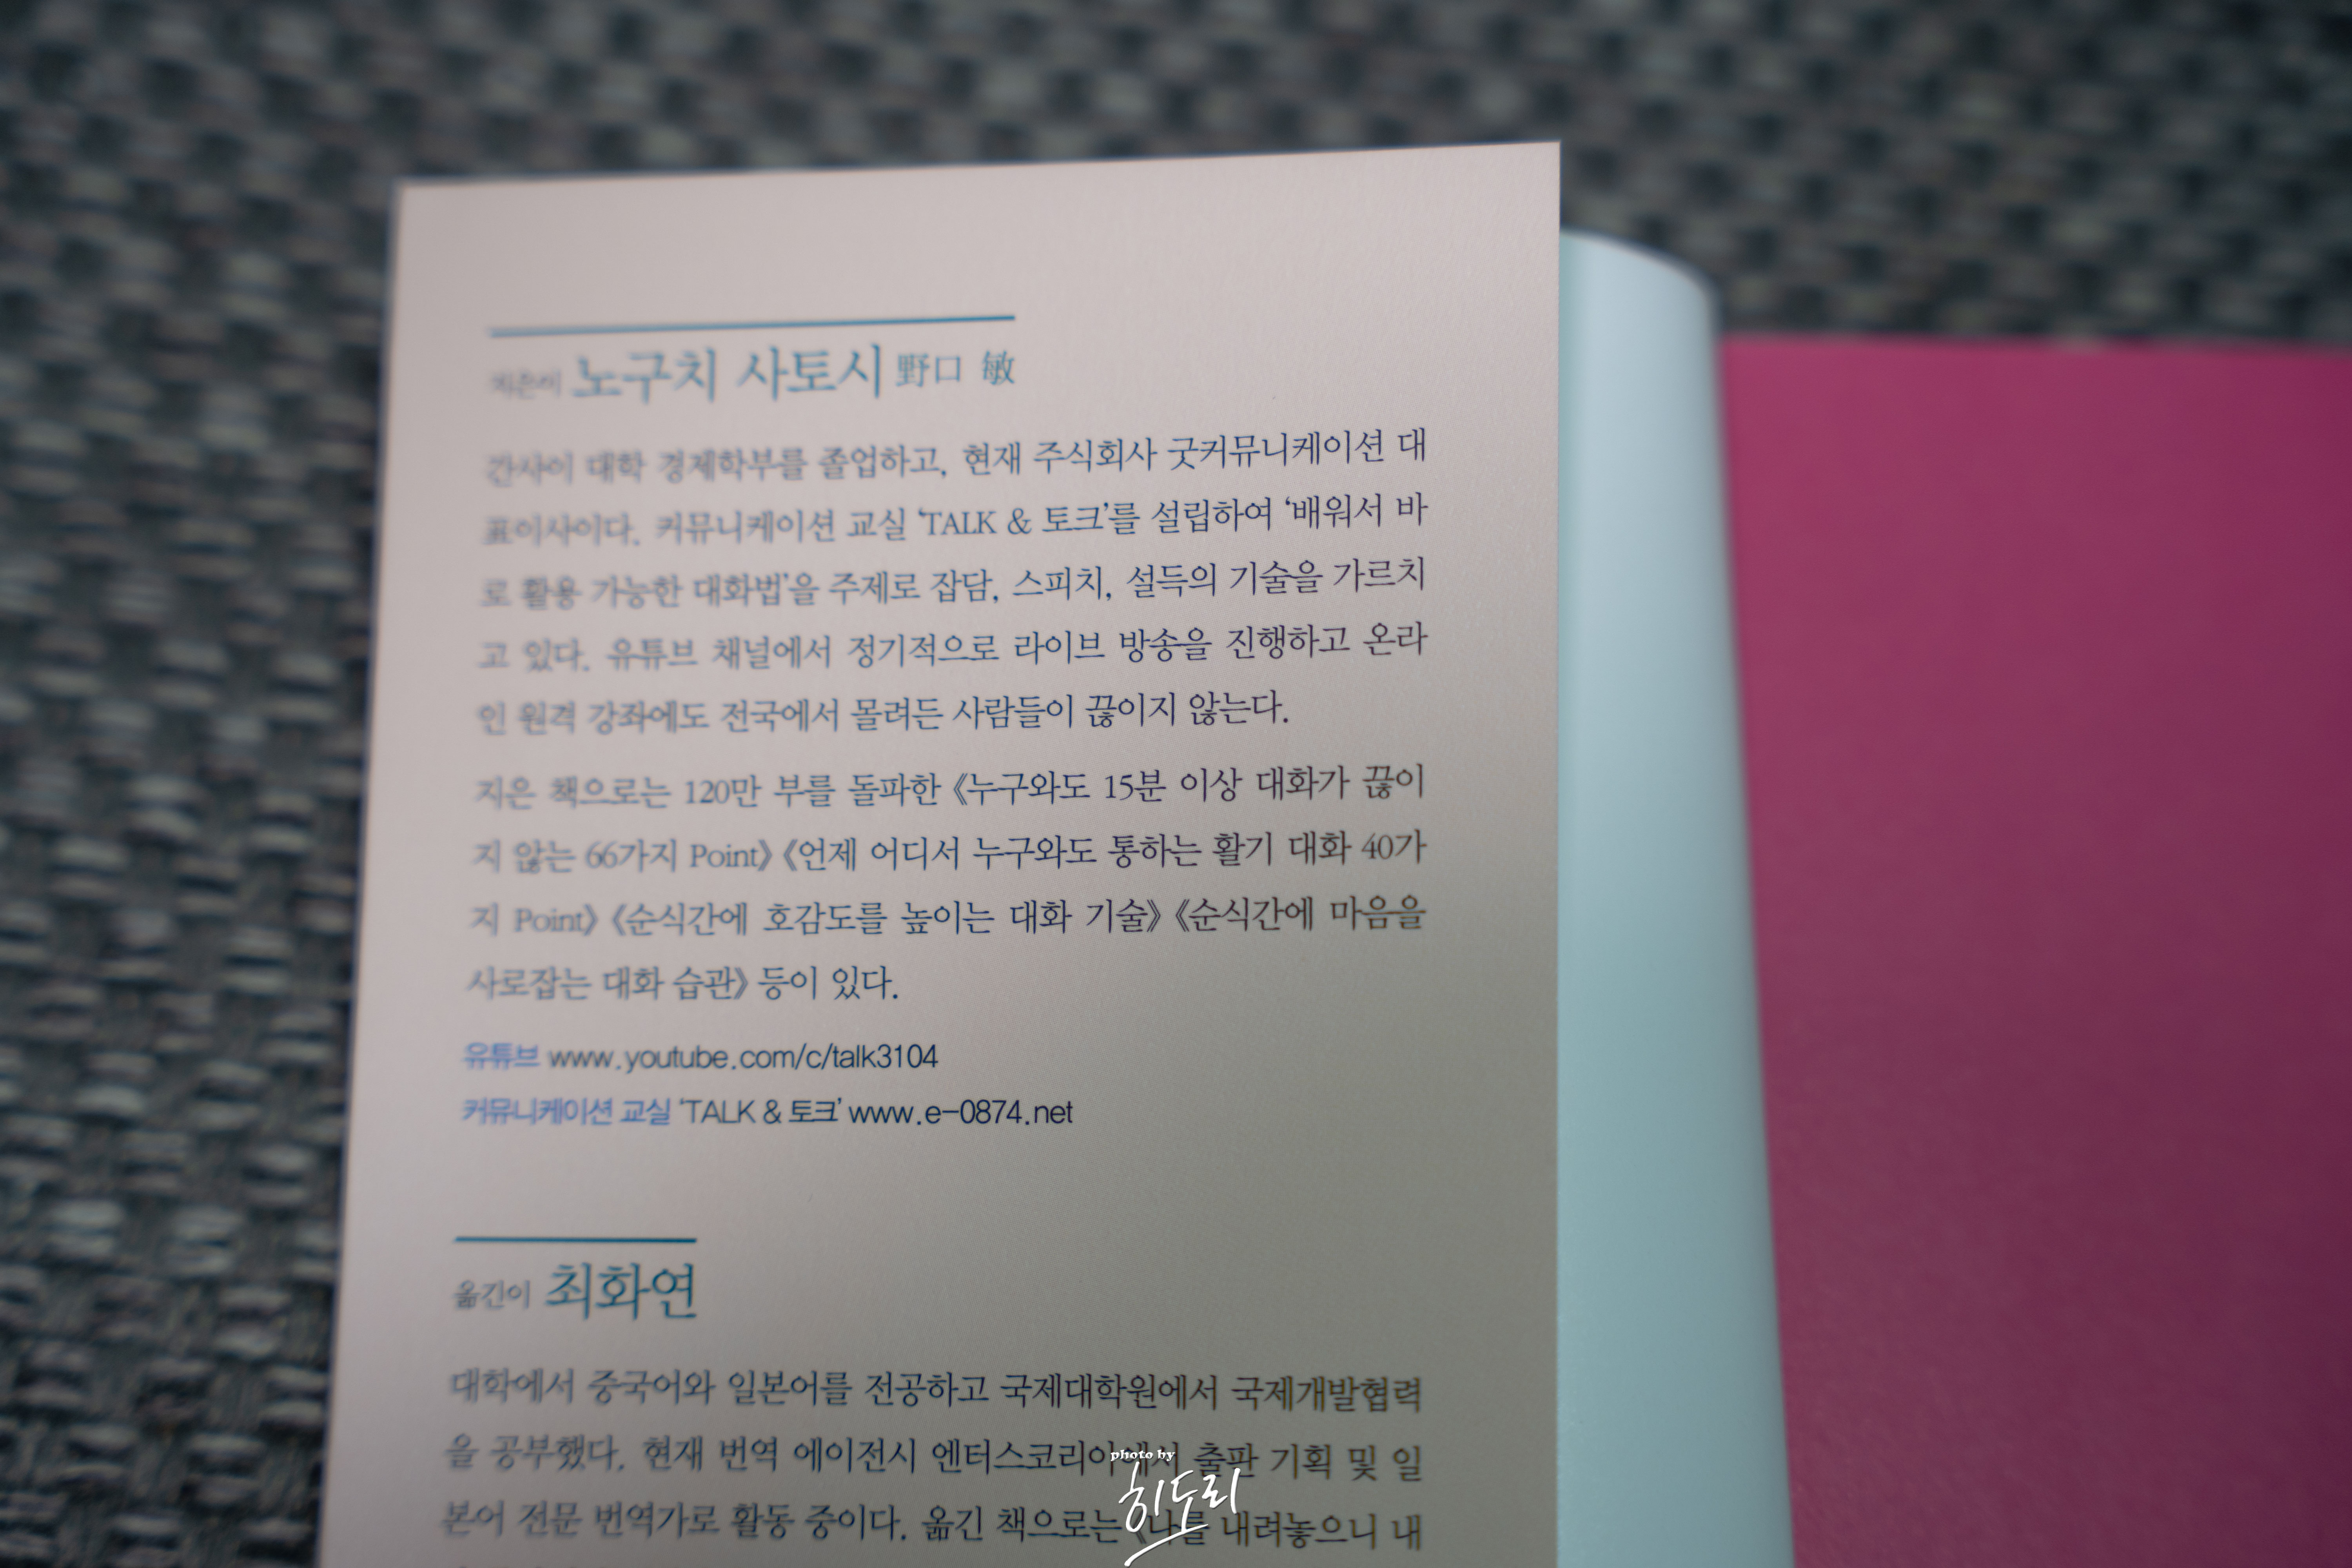 지은이 노구치 사토시 野口 敏
간사이 대학 경제학부를 졸업하고, 현재 주식회사 굿커뮤니케이션 대
표이사이다. 커뮤니케이션 교실 ‘TALK & 토크’를 설립하여 ‘배워서 바
로 활용 가능한 대화법’을 주제로 잡담, 스피치, 설득의 기술을 가르치
고 있다. 유튜브 채널에서 정기적으로 라이브 방송을 진행하고 온라
인 원격 강좌에도 전국에서 몰려든 사람들이 끊이지 않는다.
지은 책으로는 120만 부를 돌파한 《누구와도 15분 이상 대화가 끊이
지 않는 66가지 Point》《언제 어디서 누구와도 통하는 활기 대화 40가
지 Point》《순식간에 호감도를 높이는 대화 기술》《순식간에 마음을
사로잡는 대화 습관》 등이 있다.
유튜브 www.youtube.com/c/talk3104
커뮤니케이션 교실 ‘TALK & 토크’ www.e-0874.net
옮긴이 최화연
대학에서 중국어와 일본어를 전공하고 국제대학원에서 국제개발협력
을 공부했다. 현재 번역 에이전시 엔터스코리아에서 출판 기획 및 일
본어 전문 번역가로 활동 중이다. 옮긴 책으로는 《나를 내려놓으니 내
photo by
히도리